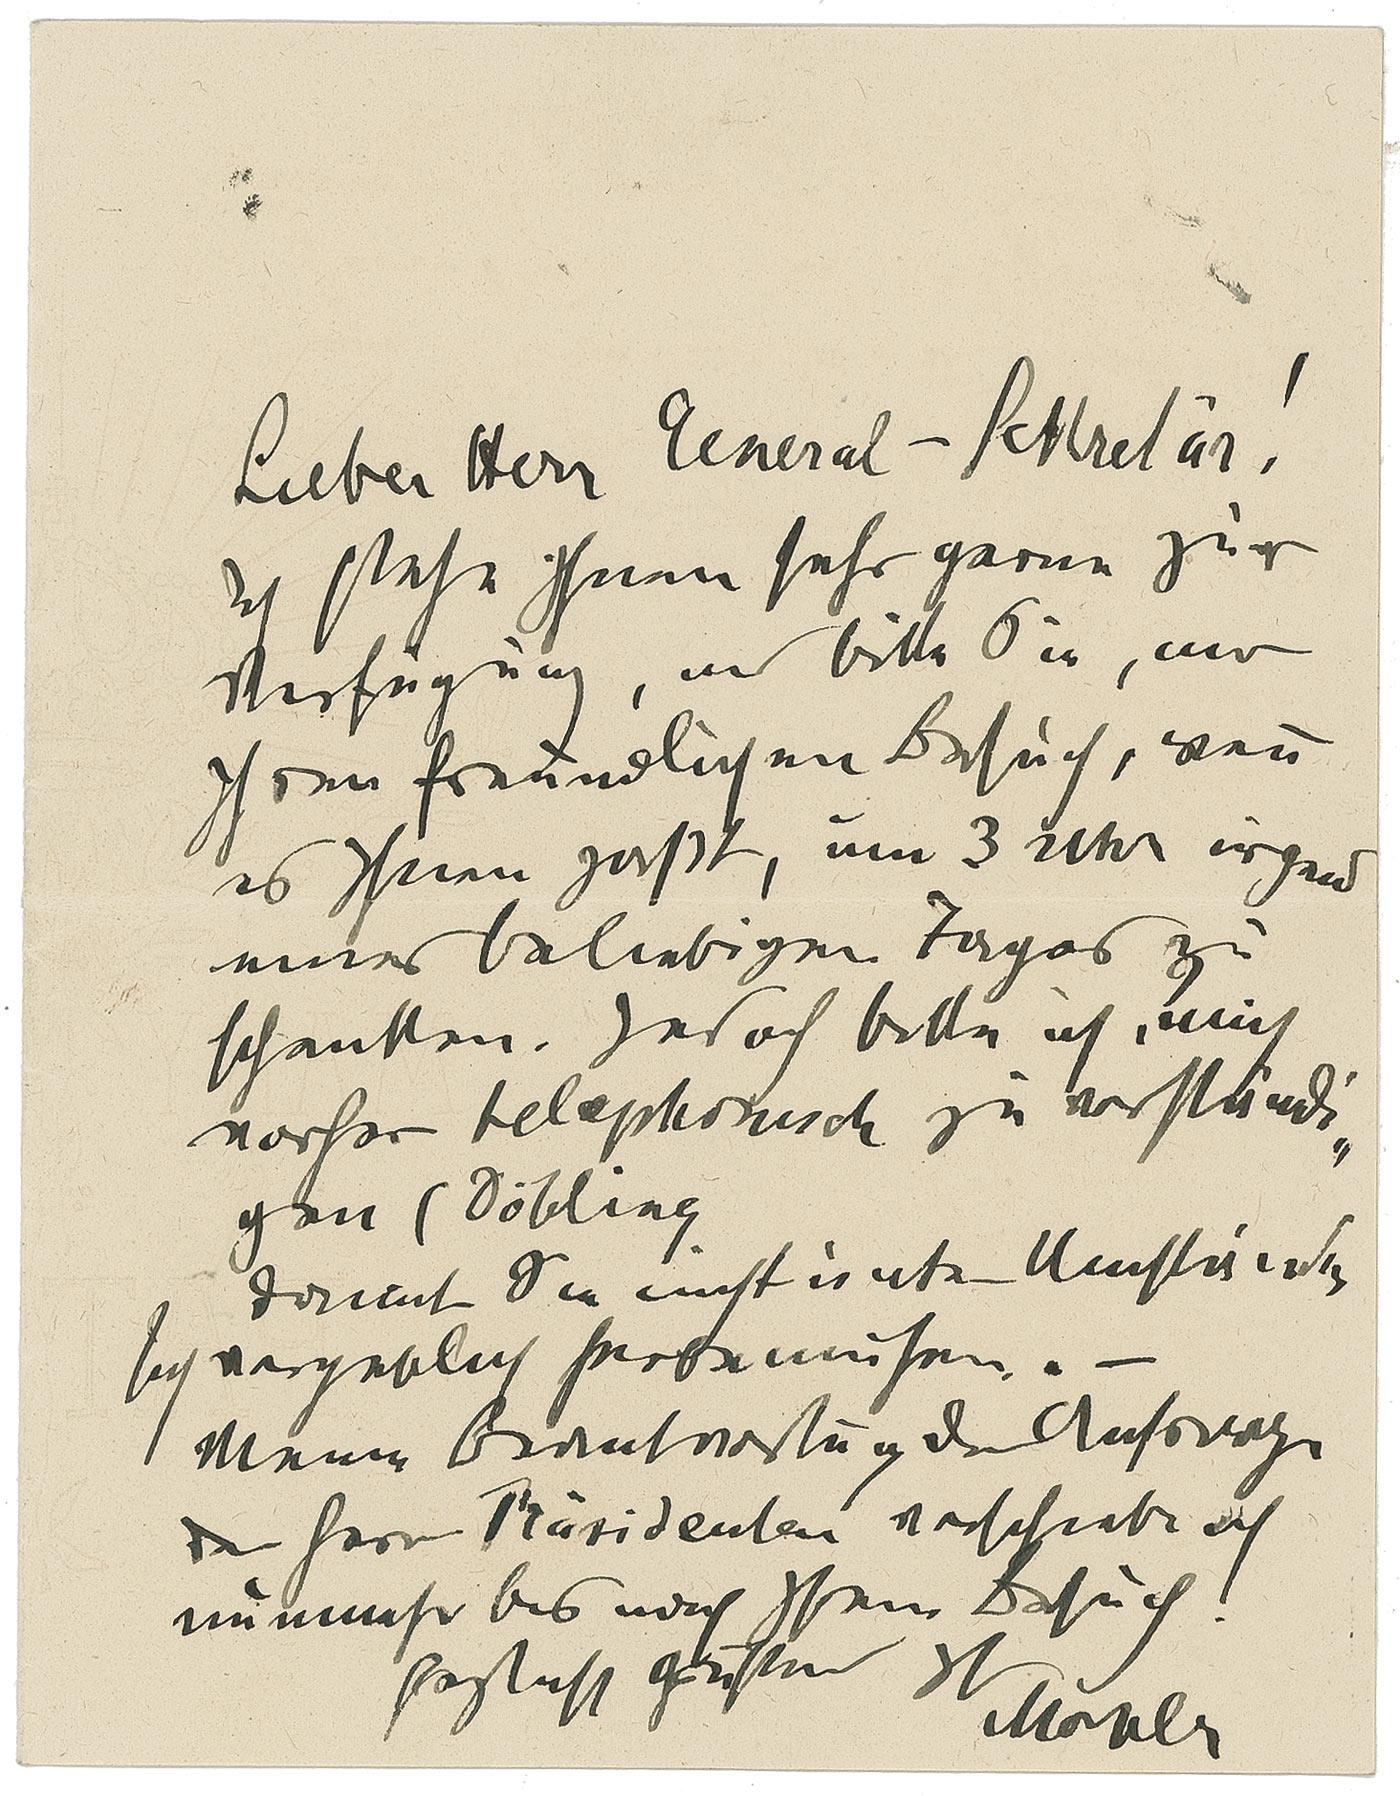 Lieber Herr General-Sekretär!
Ich stehe Ihnen sehr gerne zur
Verfügung, und bitte Sie, mir
Ihren freundlichen Besuch, wenn
es Ihnen paßt, um 3 Uhr irgend
eines beliebigen Tages zu
schenken. Jedoch bitte ich, mich
vorher telephonisch zu verständi„
gen (Döbling
damit Sie nicht unter Umständen
sich vergeblich herbemühen. –
Meine Beantwortung der Anfrage
des Herrn Präsidenten verschiebe ich
nunmehr bis nach Ihrem Besuch!
Herzlichst grüßend Ihr
Mahler